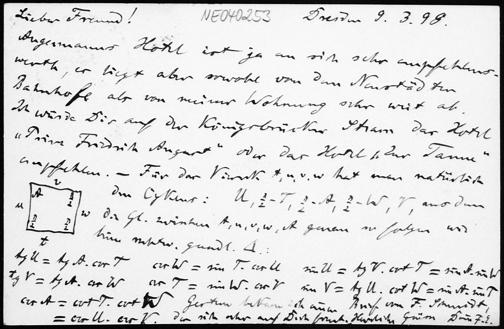 Lieber Freund! NE040253 Dresden 9. 3. 98.
Angermanns Hotel ist ja an sich sehr empfehlens-
werth, er liegt aber sowohl von dem Neustädter
Bahnhofe als von meiner Wohnung sehr weit ab.
Ich würde Dir auf der Königsbrücker Strasse das Hotel
„Prinz Friedrich August" oder das Hotel „Zur Tanne"
empfehlen. — Für das Viereck t, u, v, w hat man natürlich
den Cyklus: U, π/2 - T, π/2 - A, π/2 - W, V, aus dem
die Gl. zwischen t, u, v, w, A genau so folgen wie
beim rechtw. Δ:
tg U = tg A. cos T cos W = sin T. cos U sin U = tg V. cot T = sin A. sin W
tg V = tg A. cos W cos T = sin W. cos V sin V = tg U. cot W = sin A. sin T
cos A = cot T. cot W Gestern bekam ich einen Brief von F. Schmidt,
= cos U. cos V. der sich sehr auf Dich freut. Herzliche Grüsse
v
u A π/2
w
π/2 π/2
t